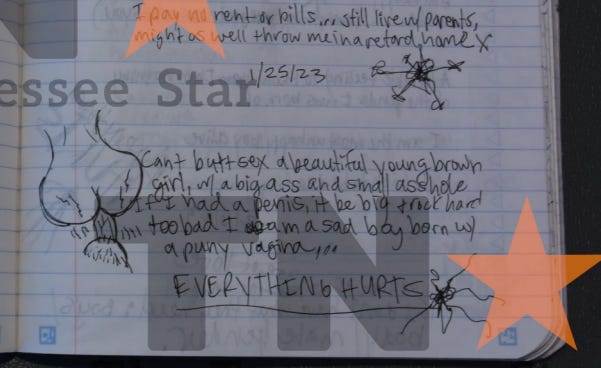 I pay no rent or bills... still live w/ parents,
might as well throw me in a retard home X
1/25/23
essee Star
Cant buttsex a beautiful young brown
girl, w/ a big ass and small asshole
If I had a penis, it be big & rock hard
too bad I am a sad boy born w/
a puny vagina...
EVERYTHING HURTS
TN